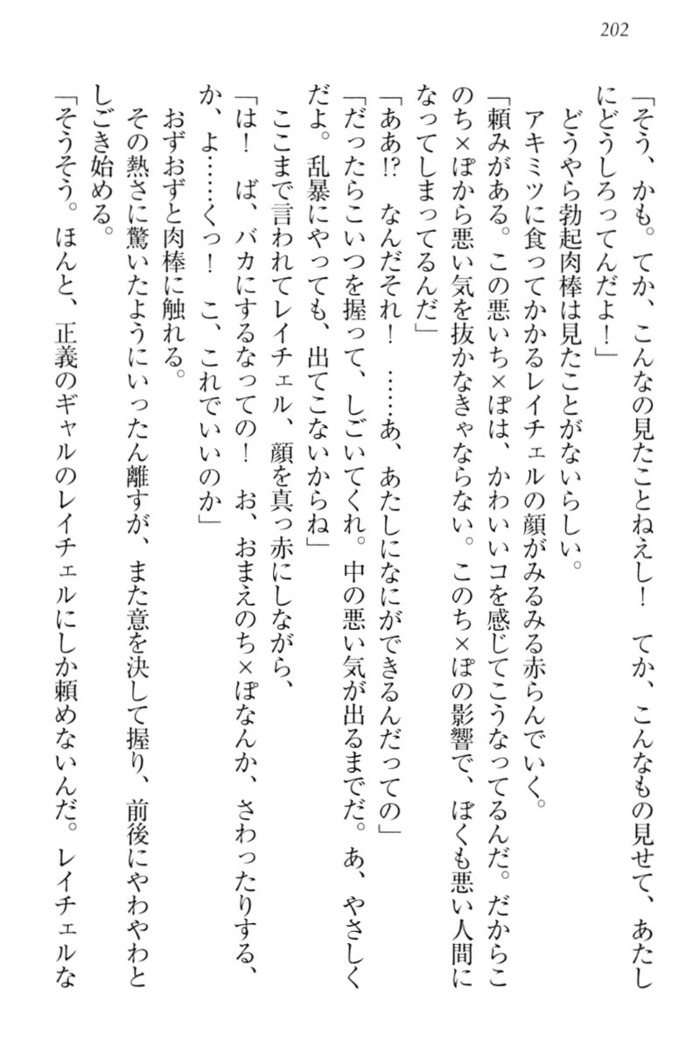 202
「そう、かも。てか、こんなの見たことねえし！　てか、こんなもの見せて、あたし
にどうしろってんだよ！」
　どうやら勃起肉棒は見たことがないらしい。
　アキミツに食ってかかるレイチェルの顔がみるみる赤らんでいく。
「頼みがある。この悪いち×ぽは、かわいいコを感じてこうなってるんだ。だからこ
のち×ぽから悪い気を抜かなきゃならない。このち×ぽの影響で、ぼくも悪い人間に
なってしまってるんだ」
「ああ!?　なんだそれ！　……あ、あたしになにができるんだっての」
「だったらこいつを握って、しごいてくれ。中の悪い気が出るまでだ。あ、やさしく
だよ。乱暴にやっても、出てこないからね」
　ここまで言われてレイチェル、顔を真っ赤にしながら、
「は！　ば、バカにするなっての！　お、おまえのち×ぽなんか、さわったりする、
か、よ……くっ！　こ、これでいいのか」
　おずおずと肉棒に触れる。
　その熱さに驚いたようにいったん離すが、また意を決して握り、前後にやわやわと
しごき始める。
「そうそう。ほんと、正義のギャルのレイチェルにしか頼めないんだ。レイチェルな